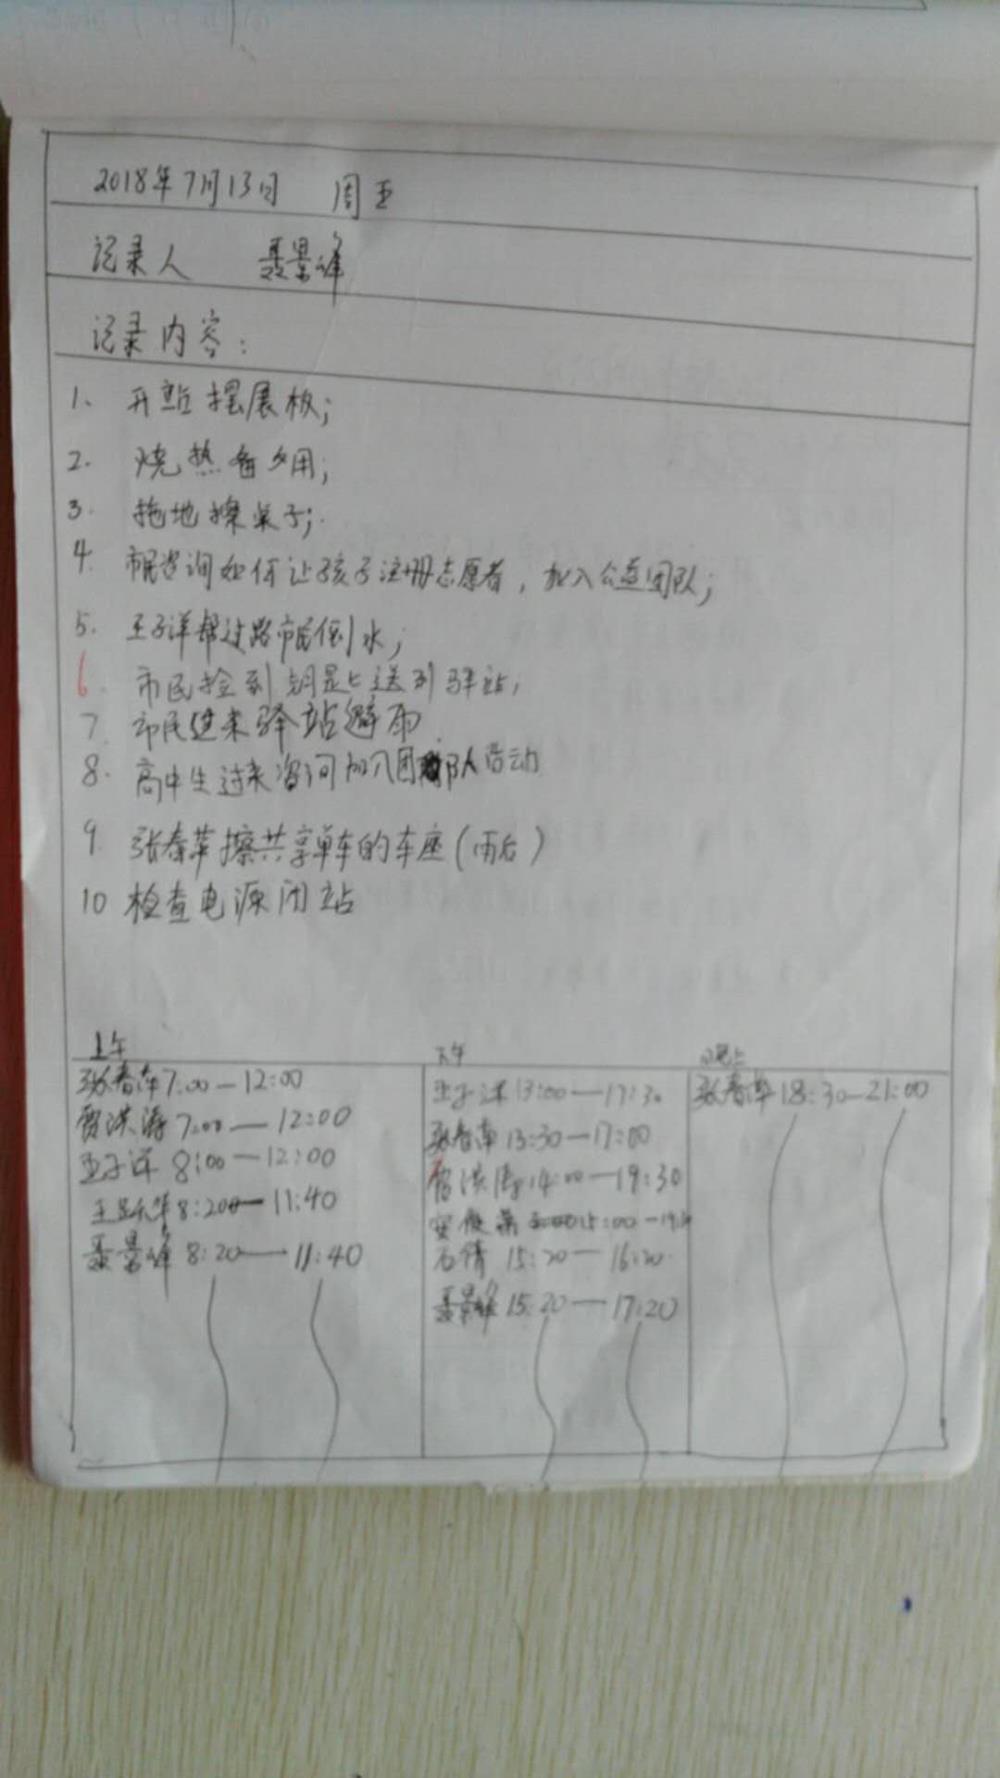 2018年7月13日 周五
记录人 聂景峰
记录内容：
1、 开站摆展板；
2. 烧热备用；
3. 拖地擦桌子；
4. 市民咨询如何让孩子注册志愿者，加入公益团队；
5. 王子洋帮过路市民倒水；
6. 市民捡到钥匙送到驿站；
7 市民进来驿站避雨
8. 高中生过来咨询加入团队活动
9. 张春苹擦共享单车的车座（雨后）
10 检查电源闭站
上午
张春苹 7:00—12:00
贾洪涛 7:00—12:00
王子洋 8:00—12:00
8:20—11:40
聂景峰 8:20—11:40
下午
王子洋 13:00—17:30
张春苹 13:30—17:00
贾洪涛 14:00—19:30
15:00—
石倩 15:20—16:20
聂景峰 15:20—17:20
晚上
张春苹 18:30—21:00